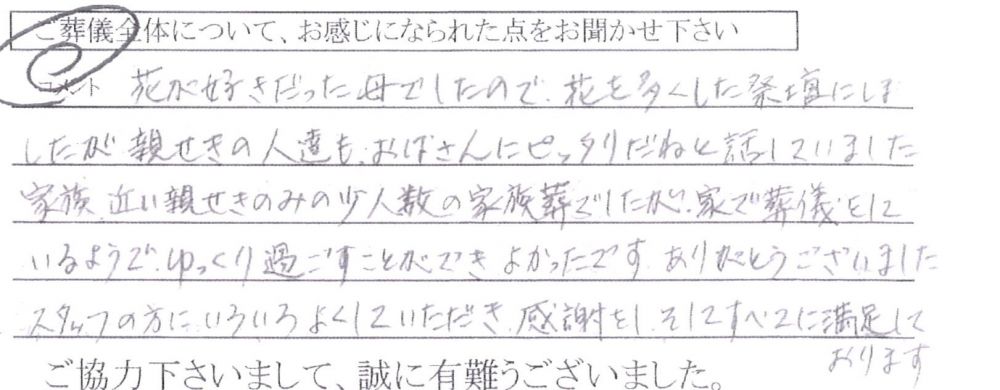 ご葬儀全体について、お感じになられた点をお聞かせ下さい
コメント 花が好きだった母でしたので、花を多くした祭壇にしま
したが親せきの人達も、おばさんにピッタリだねと話していました
家族、近い親せきのみの少人数の家族葬でしたが、家で葬儀をして
いるようで、ゆっくり過ごすことができよかったです。ありがとうございました
スタッフの方に、いろいろよくしていただき、感謝をし、そしてすべてに満足して
おります
ご協力下さいまして、誠に有難うございました。